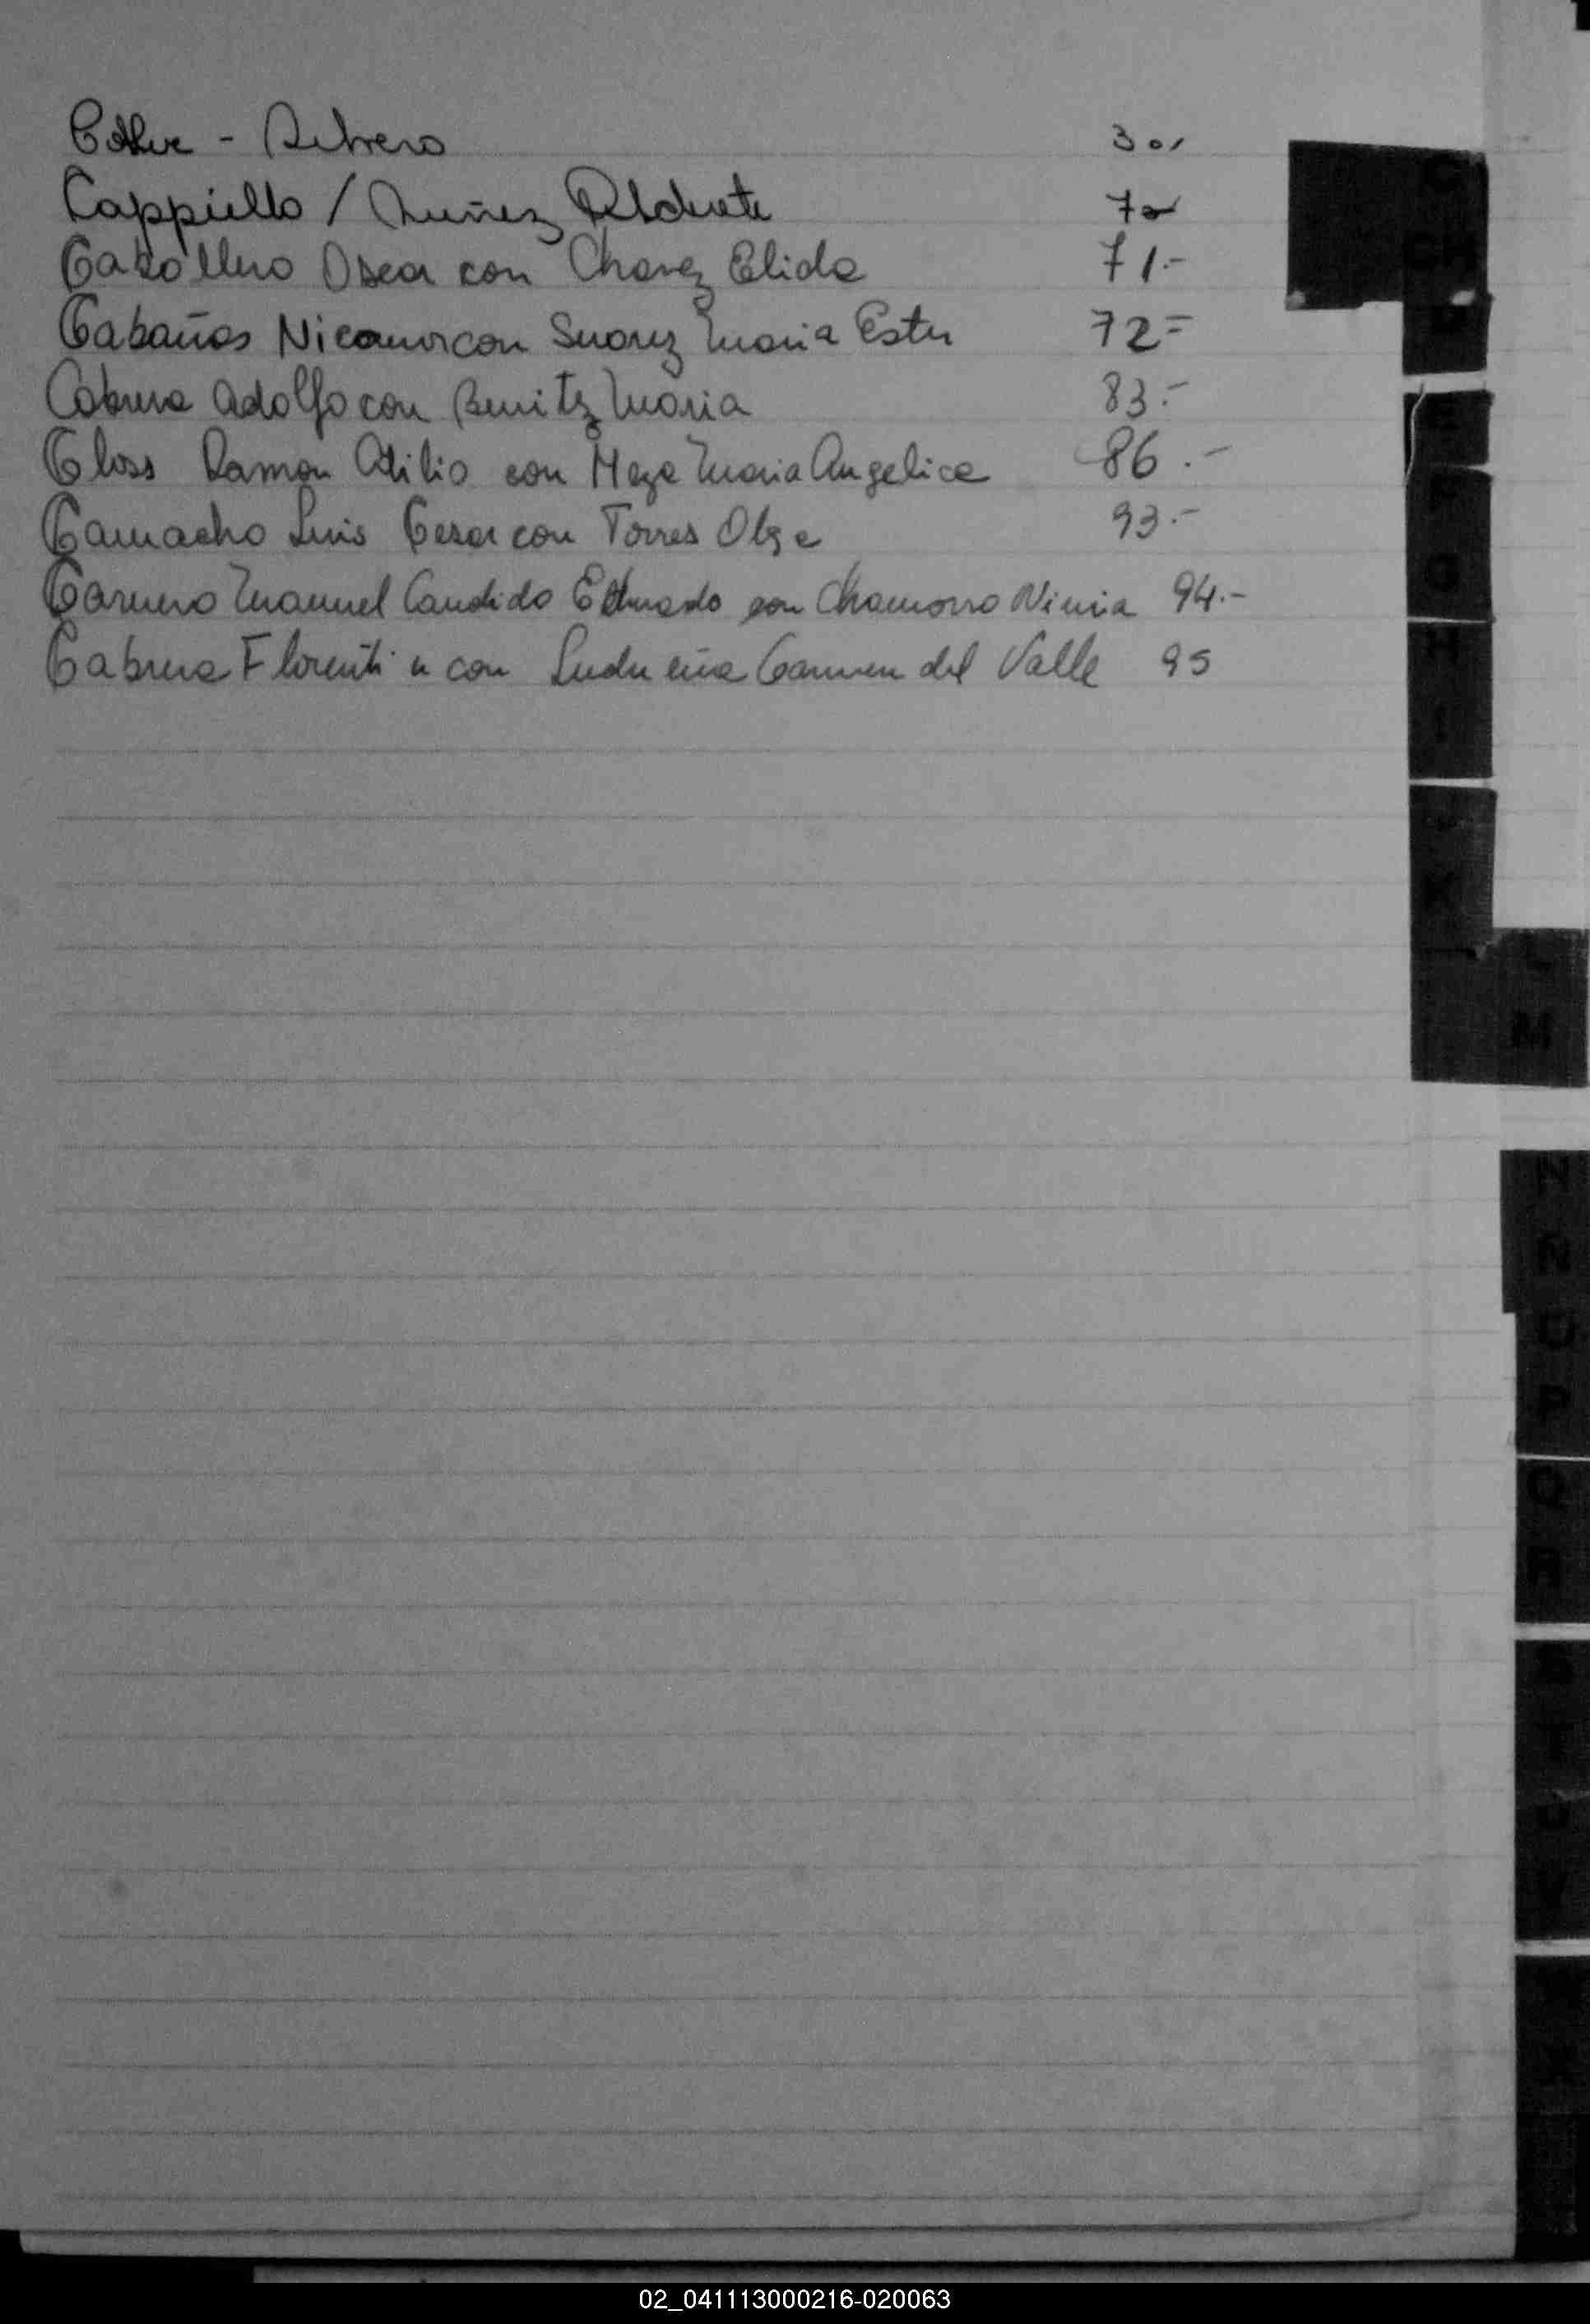 Cappiello / Nuñez 70
Caballero Oscar con Chavez Elida 71.-
Cabañas Nicanor con Suarez Maria Ester 72=
Cabrera Adolfo con Benitez Maria 83.-
Closs Ramon Atilio con Meza Maria Angelica 86.-
Camacho Luis Cesar con Torres Olga 93.-
Manuel Candido Eduardo con Chamorro Ninia 94.-
Cabrera Florentin con Ludueña Carmen del Valle 95
C
CH
D
E
F
G
H
I
K
M
N
Ñ
O
P
Q
R
S
T
U
V
02_041113000216-020063